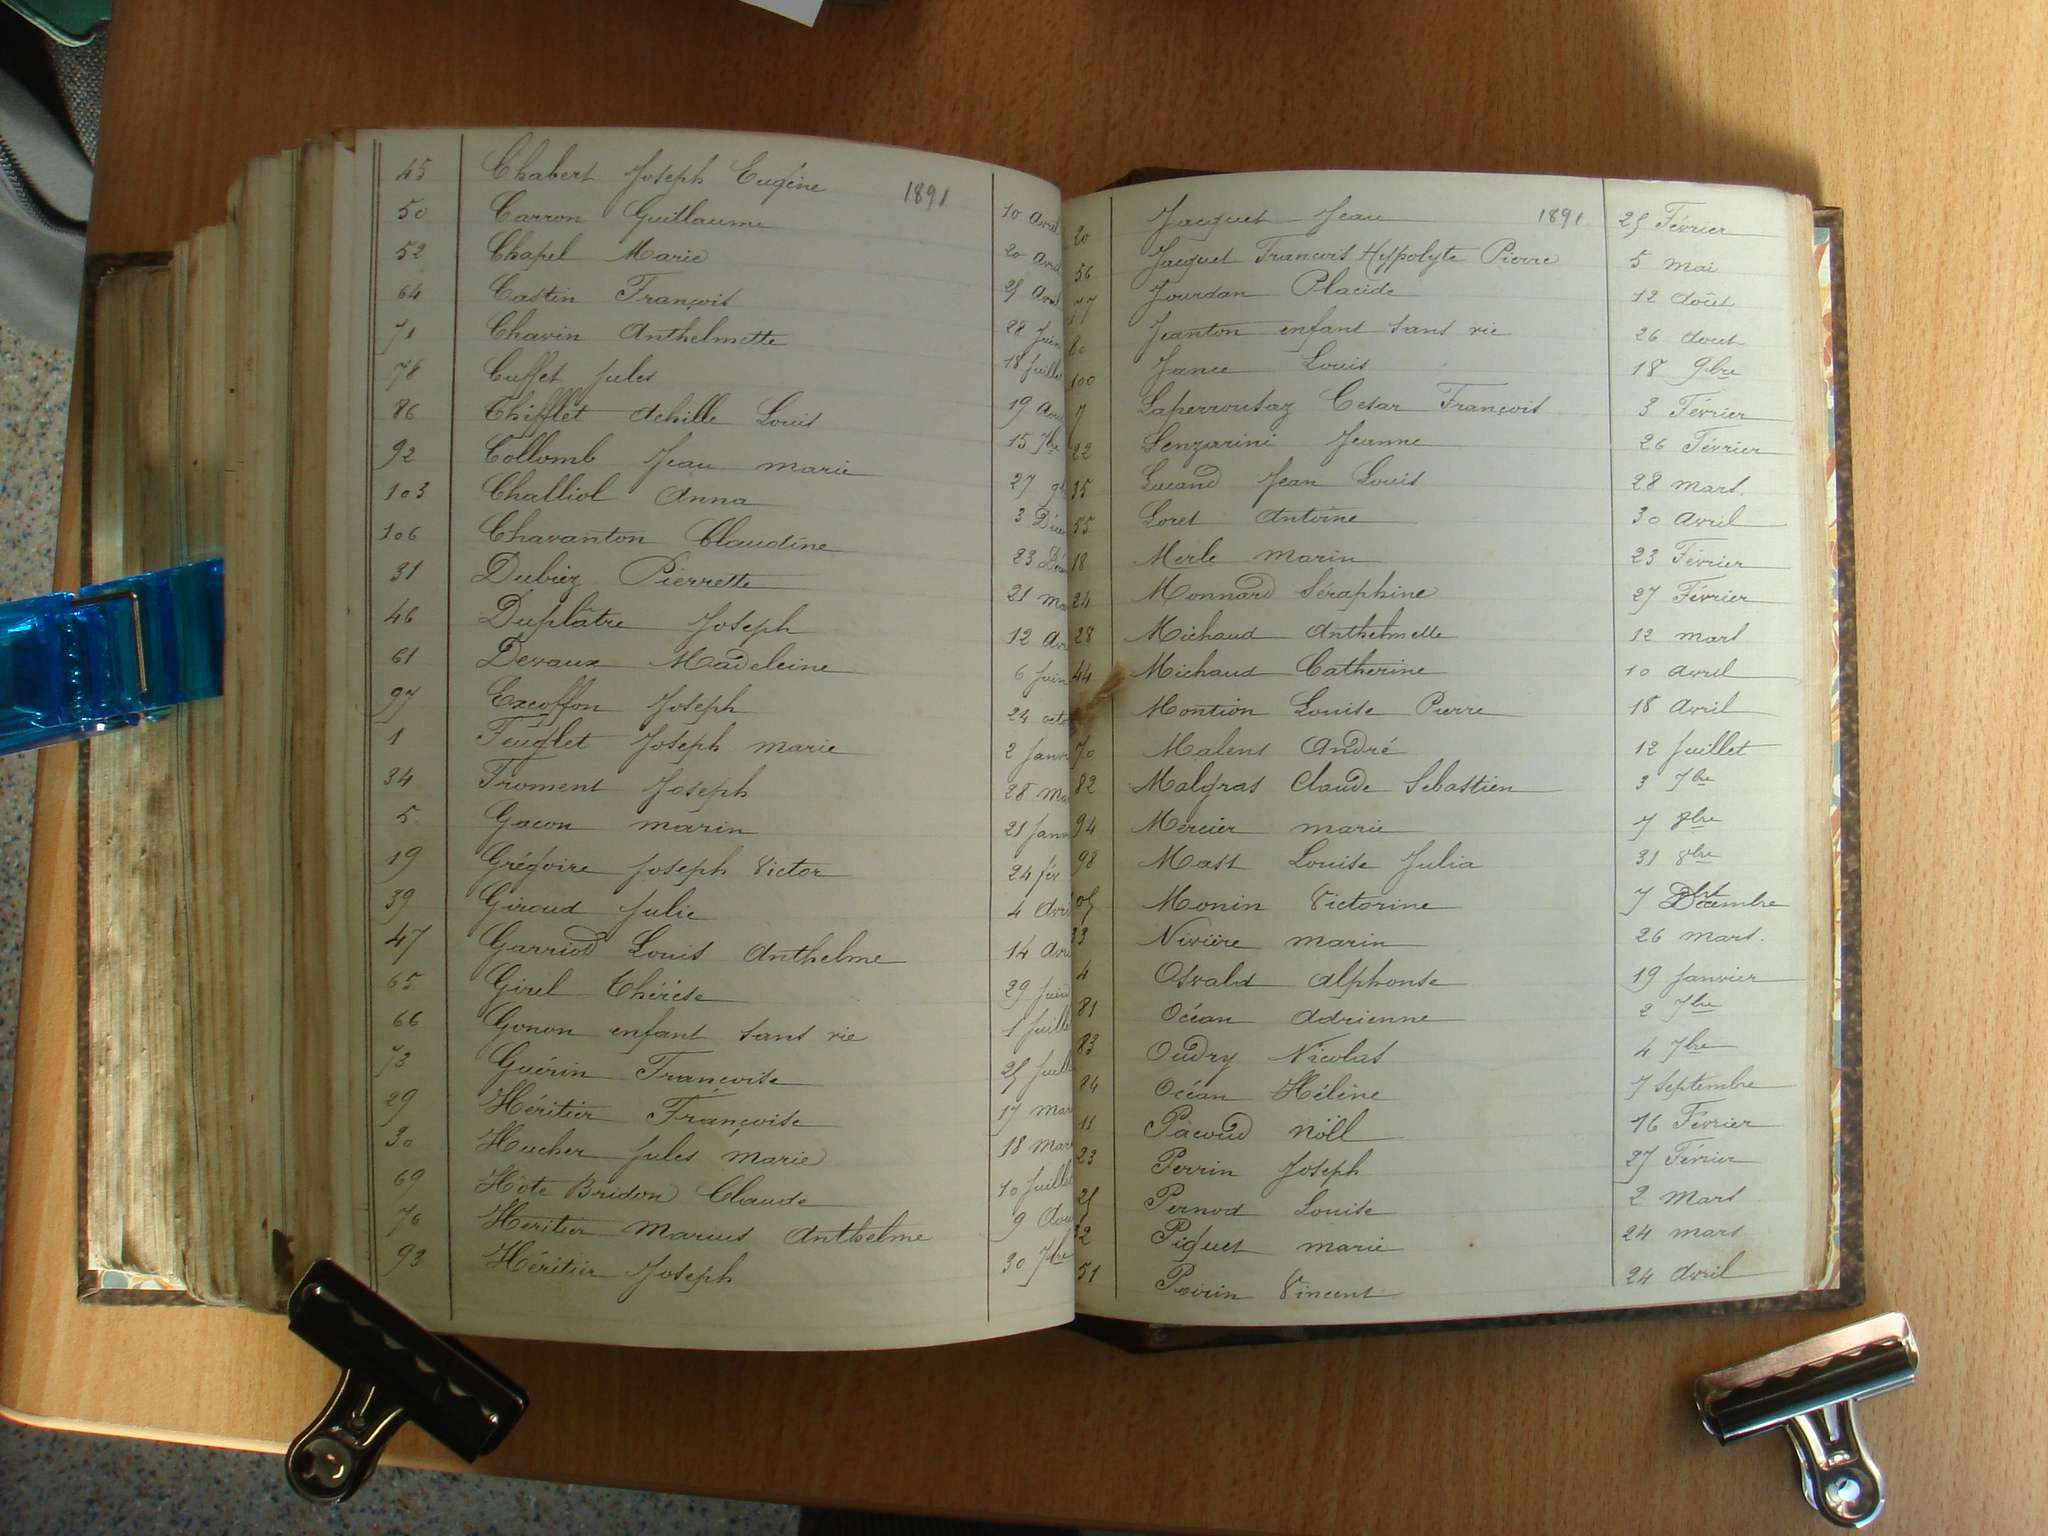 45 Chabert Joseph Eugène 1891 10 Avril
50 Carron Guillaume 20 Avril
52 Chapel Marie 25 Avril
64 Castin François 28 Juin
71 Chavin Anthelmette 18 Juillet
78 Cuffet Jules 19 Aout
86 Chifflet Achille Louis 15 7bre
92 Collomb Jean Marie 27
103 Challiol Anna 3 Déc
106 Chavanton Claudine 23 Déc
31 Dubiez Pierrette 21 Mar
46 Duplâtre Joseph 12 Avr
61 Devaux Madeleine 6 Juin
97 Excoffon Joseph 24 octo
1 Feuglet Joseph Marie 2 Janv
34 Froment Joseph 28 Mar
5 Gacon Marin 21 Janv
19 Grégoire Joseph Victor 24 fév
39 Giroud Julie 4 Avri
47 Garriod Louis Anthelme 14 Avri
65 Girel Thérèse 29 Juin
66 Gonon enfant sans vie 1 Juille
73 Guérin Françoise 25 Juill
29 Héritier Françoise 17 mar
30 Hucher Jules Marie 18 Mar
69 Hôte Bridon Claude 10 Juillet
76 Heritier Marius Anthelme 9 Aou
93 Héritier Joseph 30 7bre
20 Jacquet Jean 1891 25 Février
56 Jacquet Francois Hyppolyte Pierre 5 Mai
77 Jourdan Placide 12 Aoüt
80 Jeanton enfant sans vie 26 Aout
100 Jance Louis 18 9bre
7 Laperrousaz Cesar François 3 Février
22 Lenzarini Jeanne 26 Février
35 Lucand Jean Louis 28 Mars.
55 Loret Antoine 30 Avril
18 Merle Marin 23 Février
24 Monnard Séraphine 27 Février
28 Michaud Anthelmette 12 Mars
44 Michaud Catherine 10 Avril
Montion Louise Pierre 18 Avril
70 Malens André 12 Juillet
82 Malgras Claude Sebastien 3 7bre
94 Mercier Marie 7 8bre
98 Mast Louise Julia 31 8bre
05 Monin Victorine 7 Décembre
33 Nivière Marin 26 Mars.
4 Osvald Alphonse 19 Janvier
81 Océan Adrienne 2 7bre
83 Oudry Nicolas 4 7bre
84 Océan Hélène 7 Septembre
11 Pacoud Nöel 16 Février
23 Perrin Joseph 27 Février
25 Pernod Louise 2 Mars
32 Piquet Marie 24 Mars
51 Perrin Vincent 24 Avril